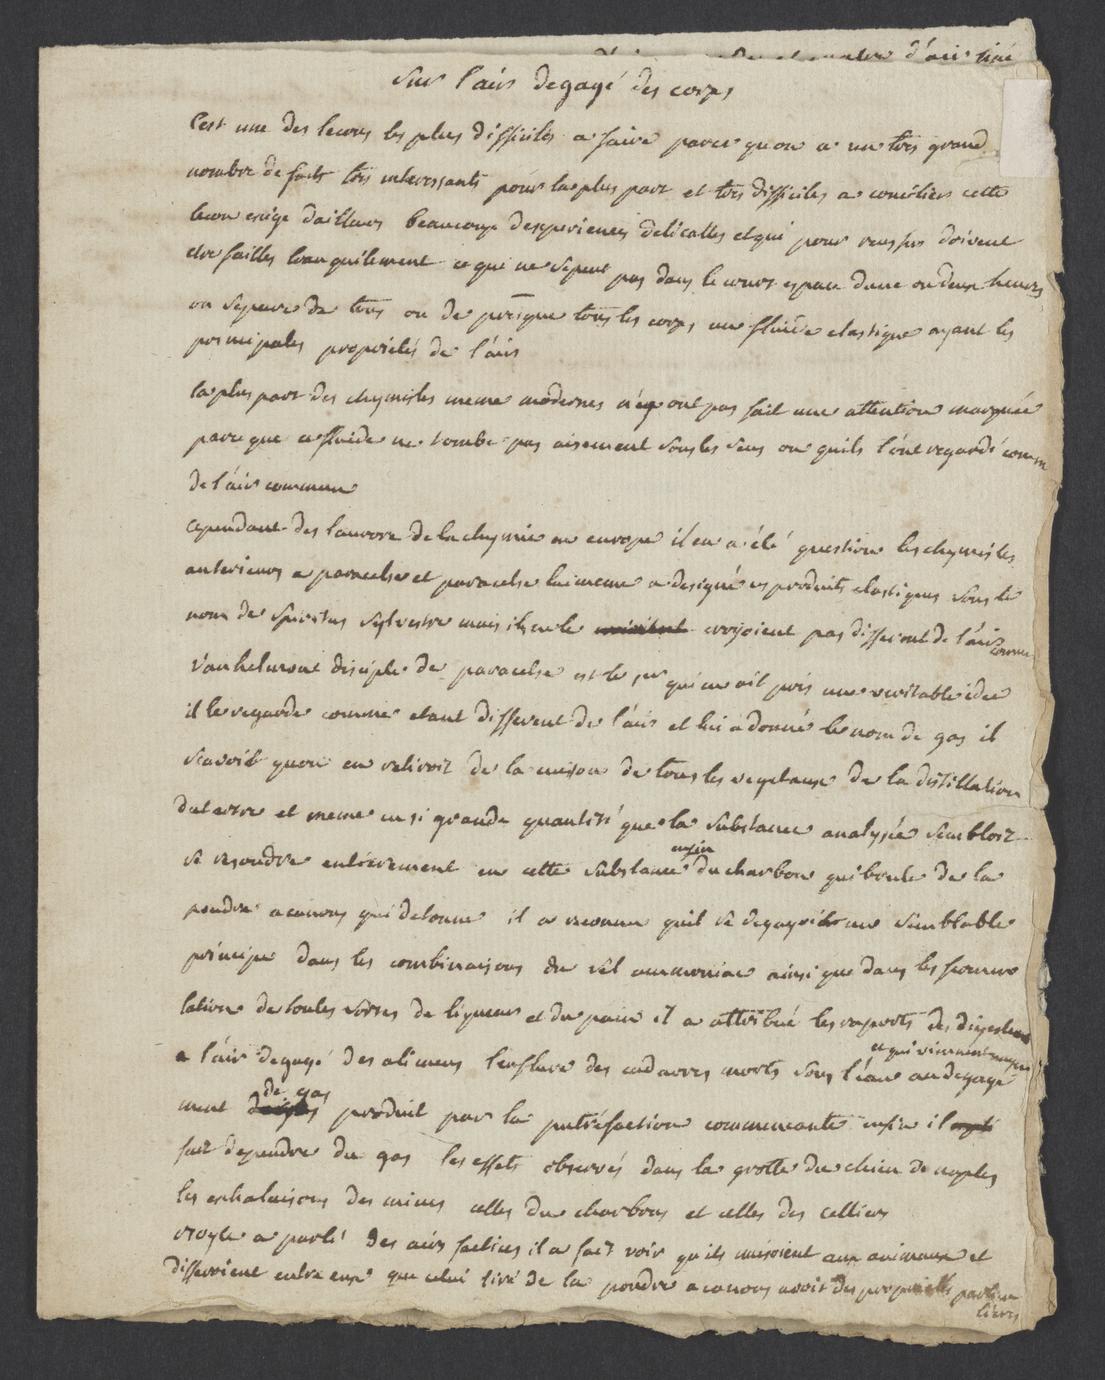 d'air tiré
Sur l'air degagé des corps
C'est une des lecons les plus difficiles a faire parce qu on a un tres grand
nombre de faits tres interessants pour la plus part et tres difficiles a concilier cette
lecon exige dailleurs beaucoup desperiences delicattes et qui pour reussir doivent
etre faittes tranquilement ce qui ne se peut pas dans le court espace dune ou deux heures
on separe de tous ou de presque tous les corps un fluide elastique ayant les
principales proprietés de l'air
la plus part des chymistes meme modernes n'y ont pas fait une attention marquée
parce que ce fluide ne tombe pas aisement sous les sens ou quils l'ont regardé comme
de l'air commun
cependant des l'aurore de la chymie en europe il en a été question les chymistes
anterieurs a paracelse et paracelse lui meme a designé ces produits elastiques sous le
nom de spiritus sylvestre mais ils ne le croyoient pas different de l'air commun
Vanhelmont disciple de paracelse est le per qui en ait pris une veritable idee
il le regarde comme etant different de l'air et lui a donné le nom de gas il
scavoit quon en retiroit de la cuison de tous les vegetaux de la distillation
du tartre et meme en si grande quantité que la substance analysée sembloit
se resoudre entierement en cette substance enfin du charbon qui brule de la
poudre a canons qui detonne il a reconnu quil se degageoit un semblable
principe dans les combinaisons du sel ammoniac ainsi que dans les fermen
tations de toutes sortes de liqueurs et du pain il a attribué les raports des digestions
a l'air degagé des alimens l'enflure des cadavres morts sous l'eau au degage
ce qui viennent
ment de gas produit par la putréfaction commencante enfin il
fait dependre du gas les effets observés dans la grotte du chien de naples
les exhalaisons des mines celles du charbons et celles des celliers
boyle a parlé des airs factices il a fait voir qu ils nuisoient aux animaux et
differoient entre eux que celui tiré de la poudre a canons avoit des proprietés particu
lieres